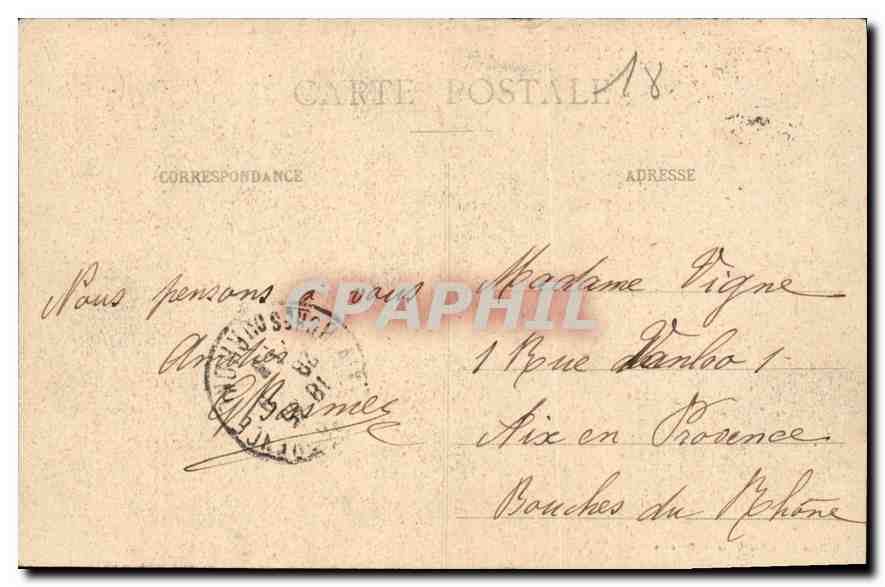 CARTE POSTALE
18
CORRESPONDANCE
ADRESSE
Nous pensons à vous
Amitiés
Madame Vigne
1 Rue Vanloo 1
Aix en Provence
Bouches du Rhône
CPAPHIL